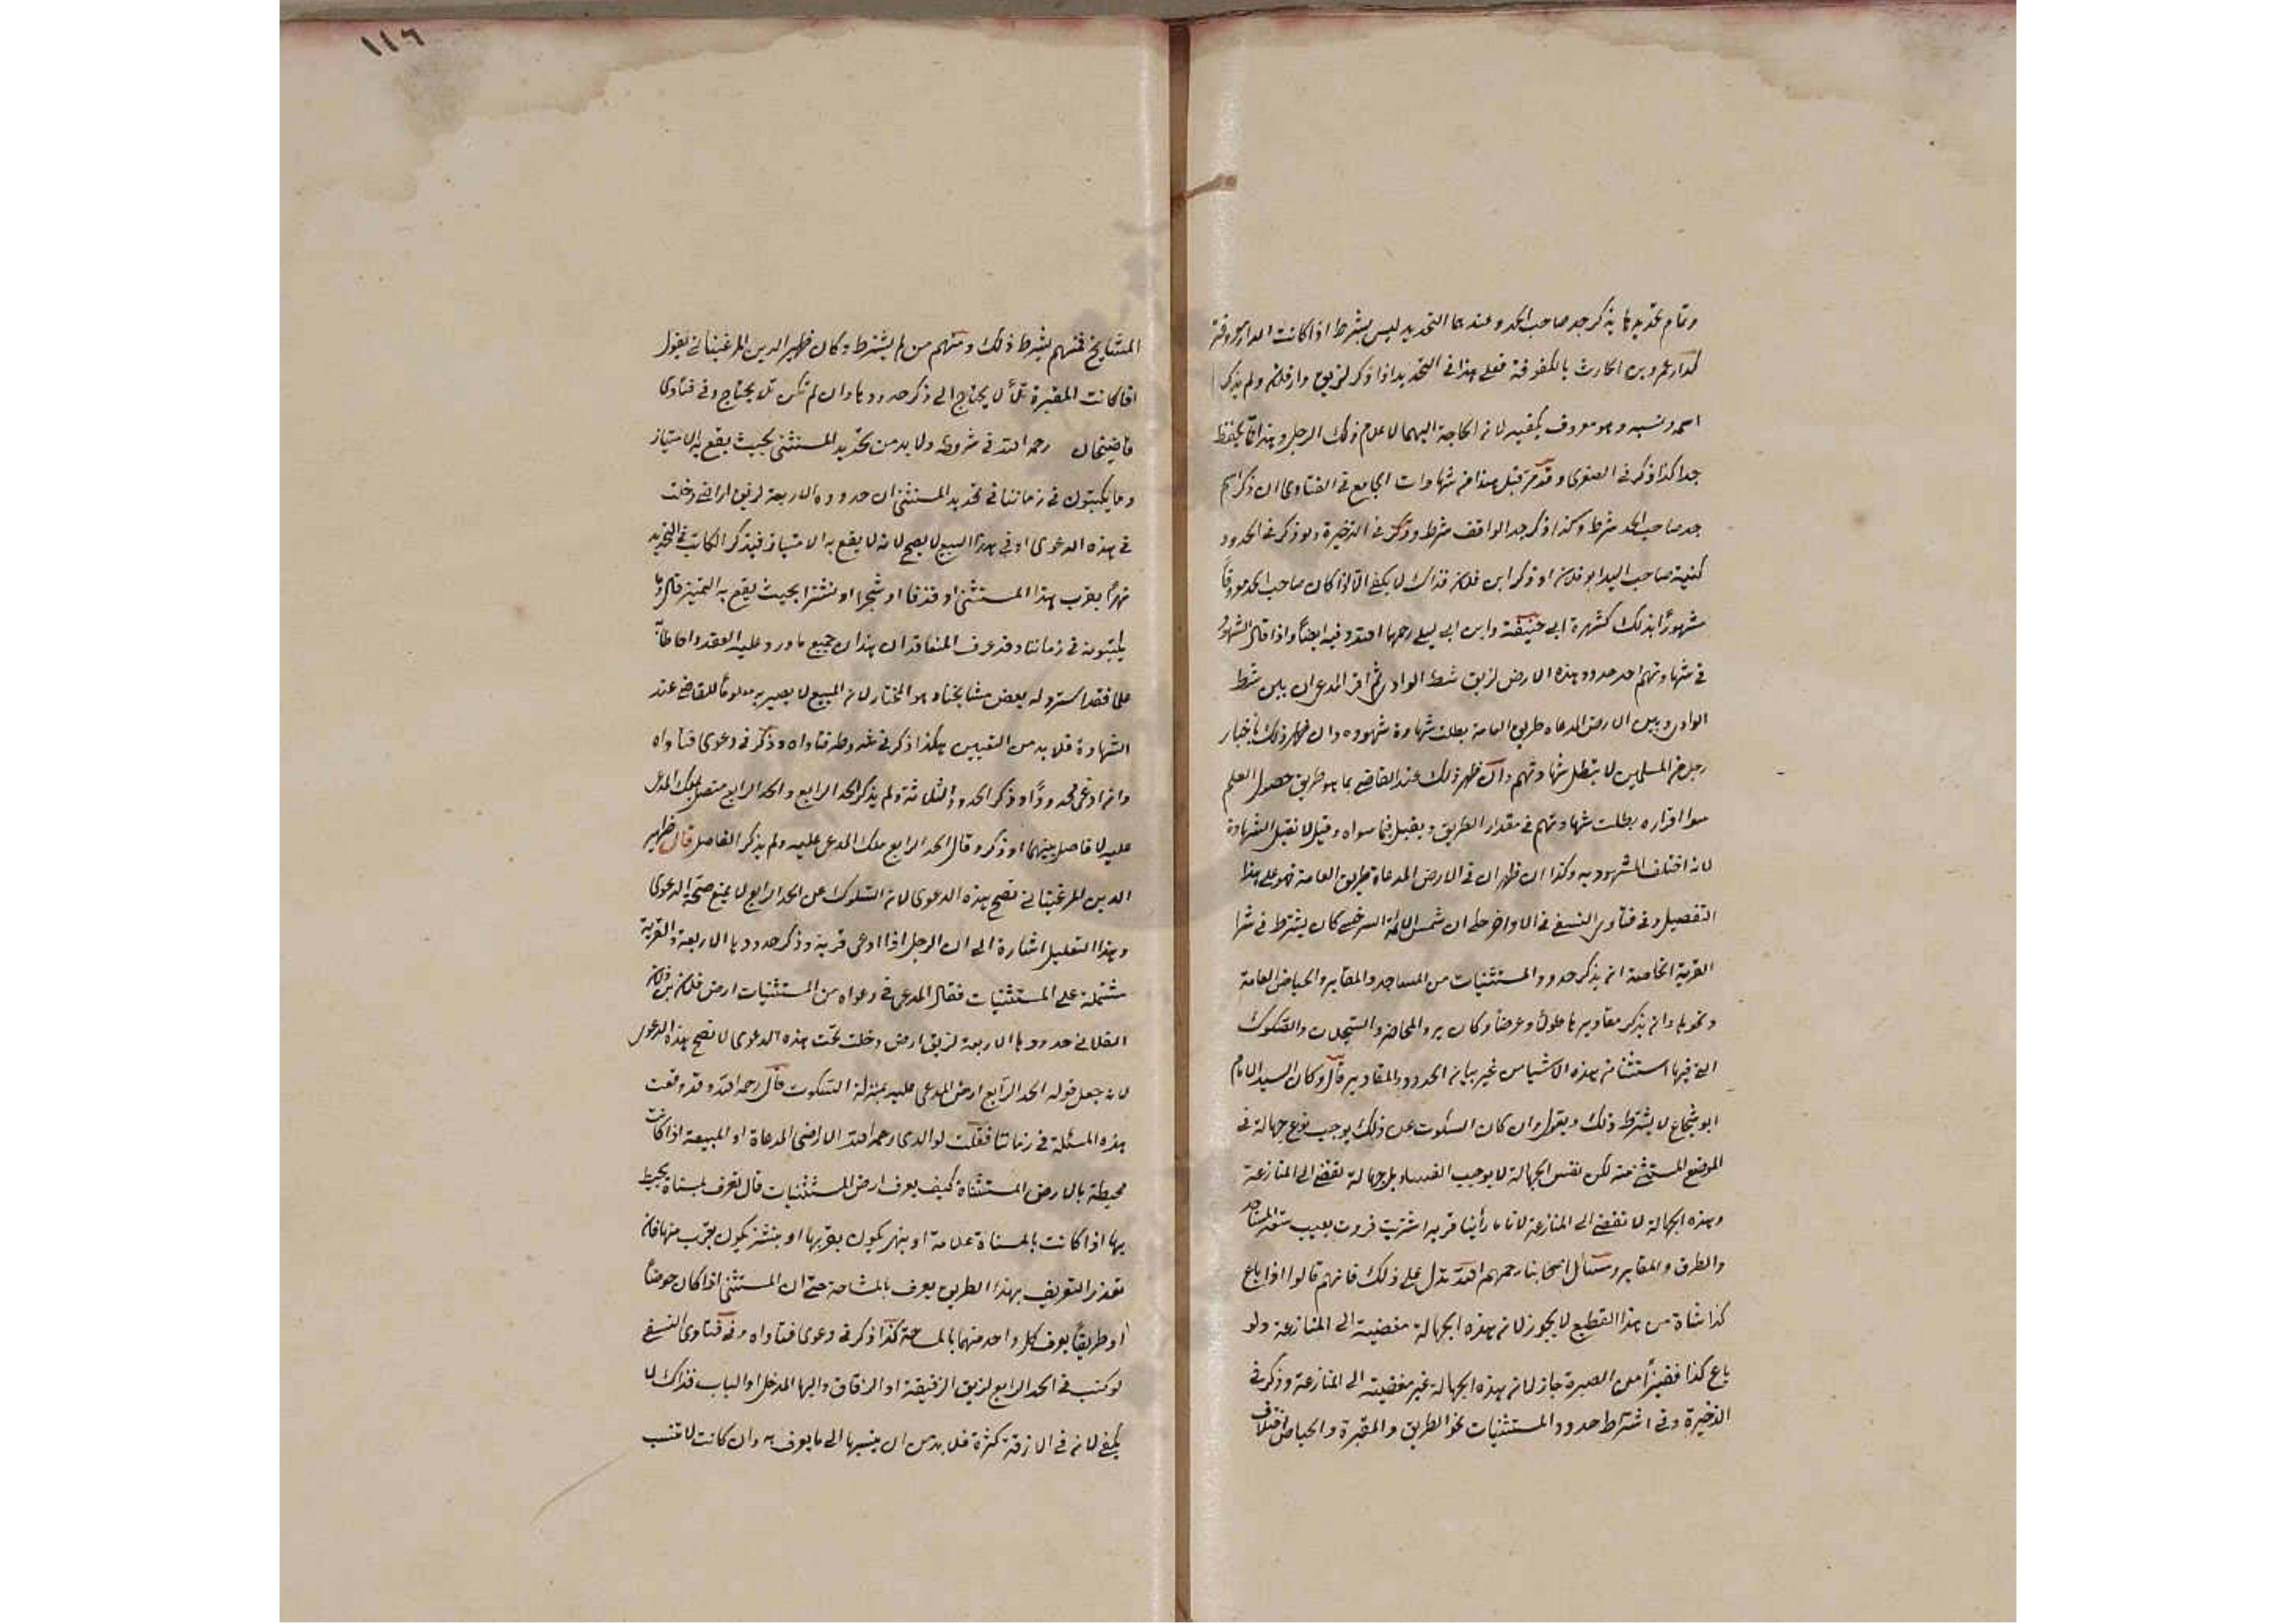 وتمام تحديدها بذكر جد صاحب الحد وعندهما التحديد ليس بشرط اذا كانت الدار معروفة
كدار عمرو بن الحارث بالكوفة فعلى هذا في التحديد اذا ذكر لزيق دار فلان ولم يذكر
اسمه ونسبه وهو معروف يكفيه لان الحاجة اليهما لاعلام ذلك الرجل وهذا مما يحفظ
جدا كذا ذكر في الصغرى وقد مر قبل هذا من شهادات الجامع في الفتاوى ان ذكر اسم
جد صاحب الحد شرط وكذا ذكر جد الواقف شرط وذكر في الذخيرة ولو ذكر في الحدود
كنية صاحب اليد ابو فلان او ذكر ابن فلان فذاك لا يكفي الا اذا كان صاحب الحد معروفا
مشهورا بذلك كشهرة ابي حنيفة وابن ابي ليلى رحمهما الله وفيه ايضا واذا قال الشهود
في شهادتهم احد حدود هذه الارض لزيق شط الوادي ثم اقر المدعي ان بين شط
الوادي وبين الارض المدعاه طريق العامة بطلت شهادة شهوده وان ظهر ذلك باخبار
رجل من المسلمين لا يبطل شهادتهم وان ظهر ذلك عند القاضي بما هو طريق حصول العلم
سوا اقراره بطلت شهادتهم في مقدار الطريق ويقبل فيما سواه وقيل لا تقبل الشهادة
لانه اختلف المشهود به وكذا ان ظهر ان في الارض المدعاة طريق العامة فهو على هذا
التفصيل وفي فتاوى النسفي في الاواخر حكى ان شمس الائمة السرخسي كان يشترط في شرا
القرية الخاصة ان يذكر حدود المستثنيات من المساجد والمقابر والحياض العامة
ونحوها وان يذكر مقاديرها طولا وعرضا وكان يرد المحاضر والسجلات والصكوك
التي فيها استثنا هذه الاشيا من غير بيان الحدود والمقادير قال وكان السيد الامام
ابو شجاع لا يشترط ذلك ويقول وان كان السكوت عن ذلك يوجب نوع جهالة في
الموضع المستثنى منه لكن نفس الجهالة لا يوجب الفساد بل جهالة تفضي الى المنازعة
وهذه الجهالة لا تفضي الى المنازعة لانا ما رأينا قرية اشتريت فردت بعيب سعة المساجد
والطرق والمقابر ومسائل اصحابنا رحمهم الله تدل على ذلك فانهم قالوا اذا باع
كذا شاة من هذا القطيع لا يجوز لان هذه الجهالة مفضية الى المنازعة ولو
باع كذا قفيزا من الصبرة جاز لان هذه الجهالة غير مفضية الى المنازعة وذكر في
الذخيرة وفي اشتراط حدود المستثنيات نحو الطريق والمقبرة والحياض اختلاف
١١٦
المشايخ فمنهم شرط ذلك ومنهم من لم يشترط وكان ظهير الدين المرغيناني يقول
اذا كانت المقبرة تلا لا يحتاج الى ذكر حدودها وان لم تكن تلا يحتاج وفي فتاوى
قاضيخان رحمه الله في شروطه ولا بد من تحديد المستثنى بحيث يقع به الامتياز
وما يكتبون في زماننا في تحديد المستثنى ان حدوده الاربعة لزيق اراضي دخلت
في هذه الدعوى او في هذا البيع لا يصح لانه لا يقع به الامتياز فيذكر الكاتب في التحديد
نهرا بقرب هذا المستثنى او شجرا او نشزا بحيث يقع به التمييز قال وما
يكتبون في زماننا وقد عرف المتعاقدان هذان جميع ما ورد عليه العقد واحاطا به
علما فقد استرد له بعض مشايخنا وهو المختار لان المبيع لا يصير به معلوما للقاضي عند
الشهادة فلا بد من التعيين هكذا ذكر في شروط فتاواه وذكر في دعوى فتاواه
وان ادعى محدودا وذكر الحدود الثلاثة ولم يذكر الحد الرابع والحد الرابع متصل بملك المدعى
عليه لا فاصل بينهما او ذكر وقال الحد الرابع ملك المدعى عليه ولم يذكر الفاصل قال ظهير
الدين المرغيناني تصح هذه الدعوى لان السكوت عن الحد الرابع لا يمنع صحة الدعوى
وهذا التعليل اشارة الى ان الرجل اذا ادعى قرية وذكر حدودها الاربعة والقرية
مشتملة على المستثنيات فقال المدعي في دعواه من المستثنيات ارض فلان بن فلان
الفلاني حدودها الاربعة لزيق ارض دخلت تحت هذه الدعوى لا تصح هذه الدعوى
لانه جعل قوله الحد الرابع ارض المدعى عليه بمنزلة السكوت قال رحمه الله وقد وقعت
هذه المسئلة في زماننا فقلت لوالدي رحمه الله الاراضي المدعاة او المبيعة اذا كانت
محيطة بالارض المستثناة كيف يعرف ارض المستثنيات قال تعرف بمسناة يحيط
بها اذا كانت بالمسناة علامة او بنهر يكون بقربها او بنشز يكون بقرب منها فان
تعذر التعريف بهذا الطريق يعرف بالمساحة حتى ان المستثنى اذا كان حوضا
او طريقا يعرف كل واحد منهما بالمساحة كذا ذكر في دعوى فتاواه وفي فتاوى النسفي
لو كتب في الحد الرابع لزيق الزقيقة او الزقاق واليها المدخل او الباب فذاك لا
يكفي لان في الازقة كثرة فلا بد من ان ينسبها الى ما يعرف به وان كانت لا تنسب